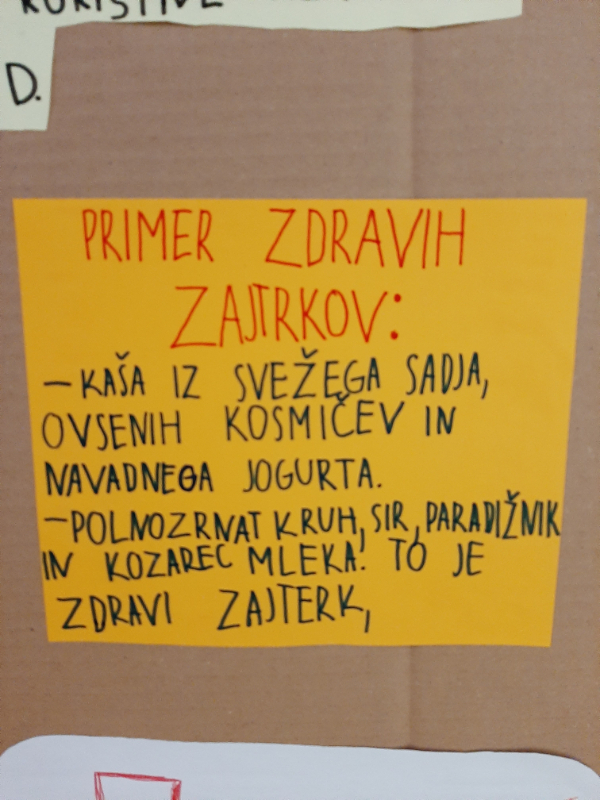 D.
PRIMER ZDRAVIH
ZAJTRKOV:
- KAŠA IZ SVEŽEGA SADJA,
OVSENIH KOSMIČEV IN
NAVADNEGA JOGURTA.
- POLNOZRNAT KRUH, SIR, PARADIŽNIK
IN KOZAREC MLEKA. TO JE
ZDRAVI ZAJTERK,